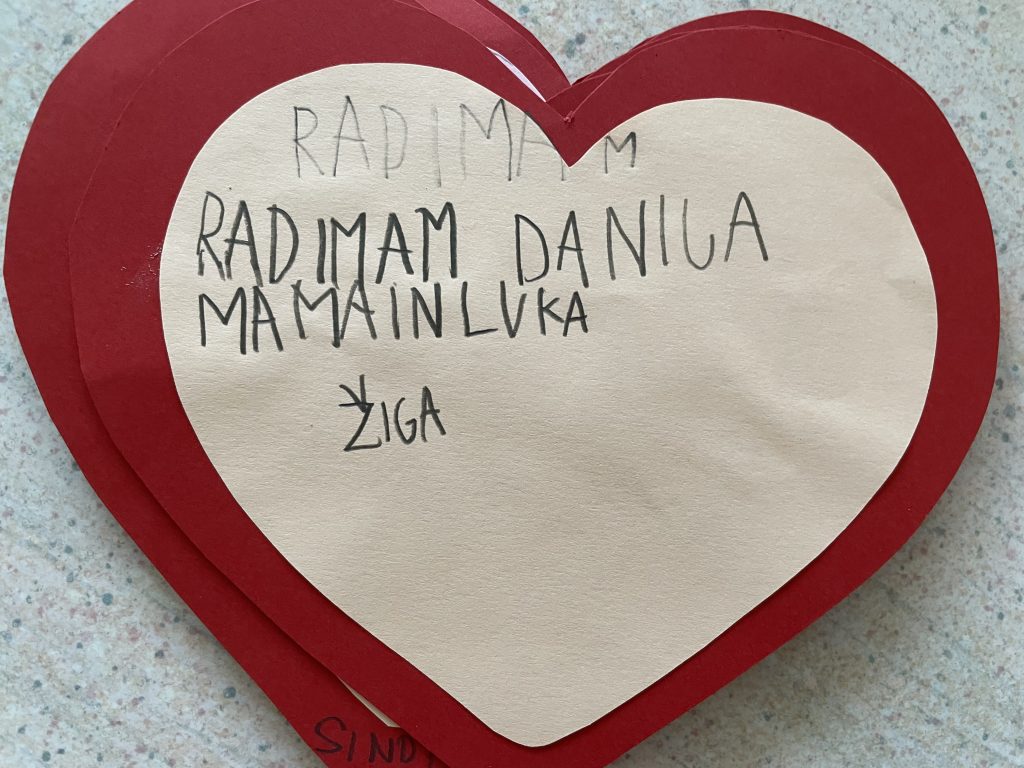 RADIMAM
RADIMAM DANIJA
MAMA IN LUKA
ŽIGA
SINDI